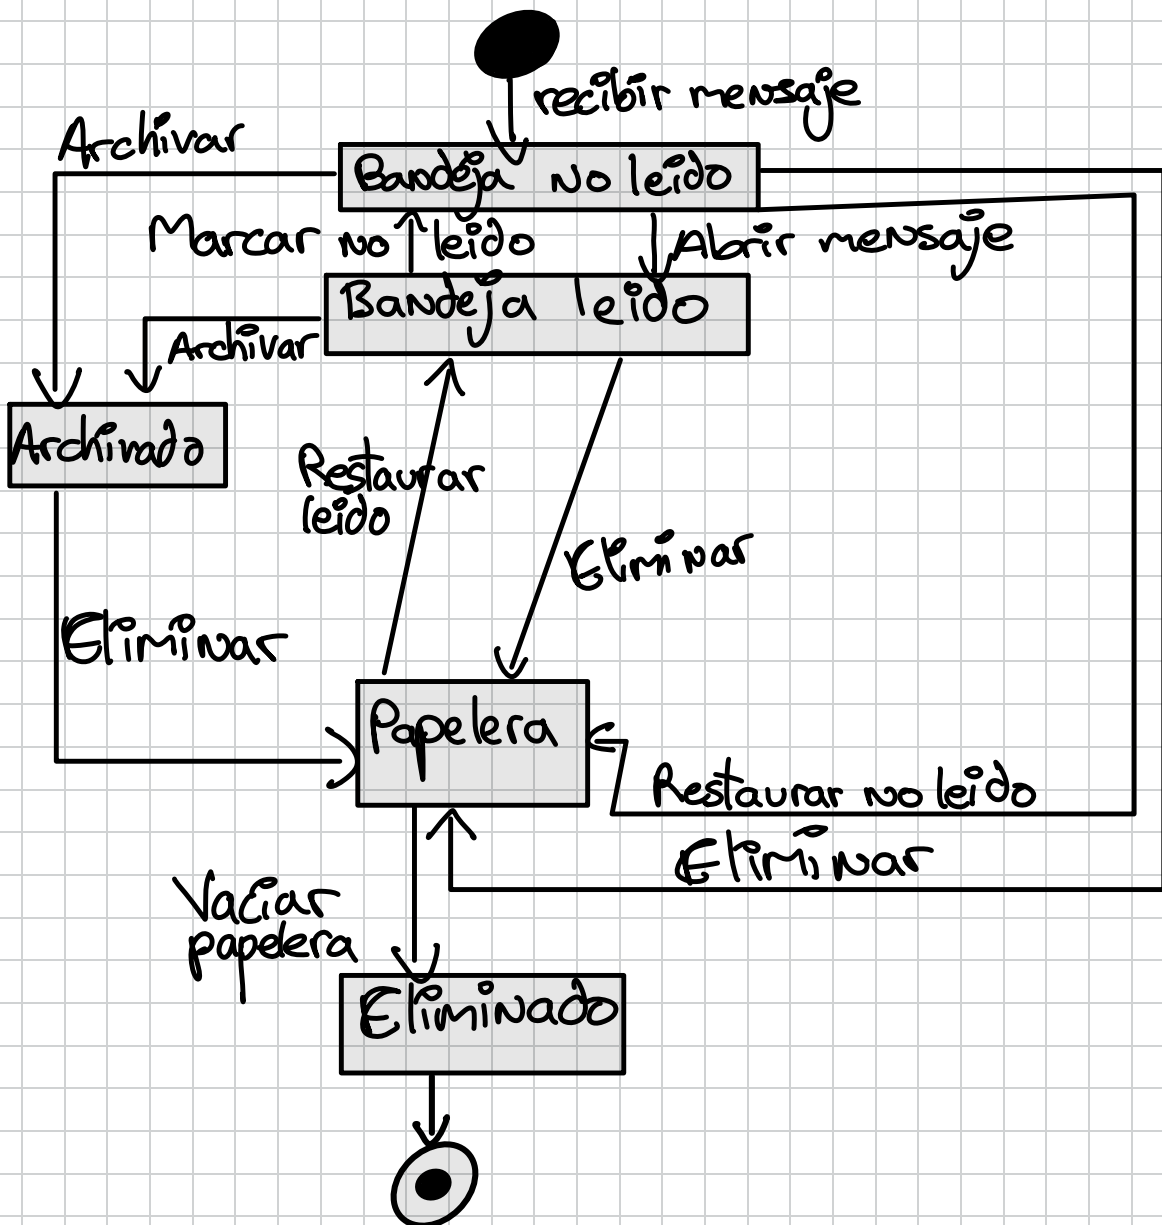 recibir mensaje
Archivar
Bandeja no leido
Marcar no leido
Abrir mensaje
Bandeja leido
Archivar
Archivado
Restaurar
leido
Eliminar
Eliminar
Papelera
Restaurar no leido
Eliminar
Vaciar
papelera
Eliminado